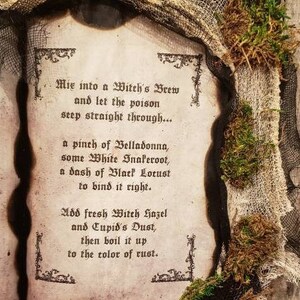 Mix into a Witch's Brew
and let the poison
seep straight through...
a pinch of Belladonna,
some White Snakeroot,
a dash of Black Locust
to bind it right.
Add fresh Witch Hazel
and Cupid's Dust,
then boil it up
to the color of rust.